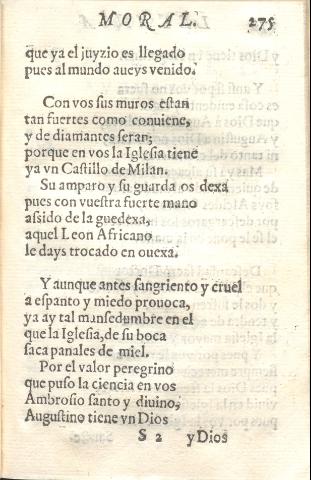 MORAL. 275
que ya el juyzio es llegado
pues al mundo aueys venido.
Con vos sus muros estan
tan fuertes como conuiene,
y de diamantes seran;
porque en vos la Iglesia tiene
ya vn Castillo de Milan.
Su amparo y su guarda os dexa
pues con vuestra fuerte mano
assido de la guedexa,
aquel Leon Africano
le days trocado en ouexa.
Y aunque antes sangriento y cruel
a espanto y miedo prouoca,
ya ay tal mansedumbre en el
que la Iglesia, de su boca
saca panales de miel.
Por el valor peregrino
que puso la ciencia en vos
Ambrosio santo y diuino;
Augustino tiene vn Dios
S 2 y Dios